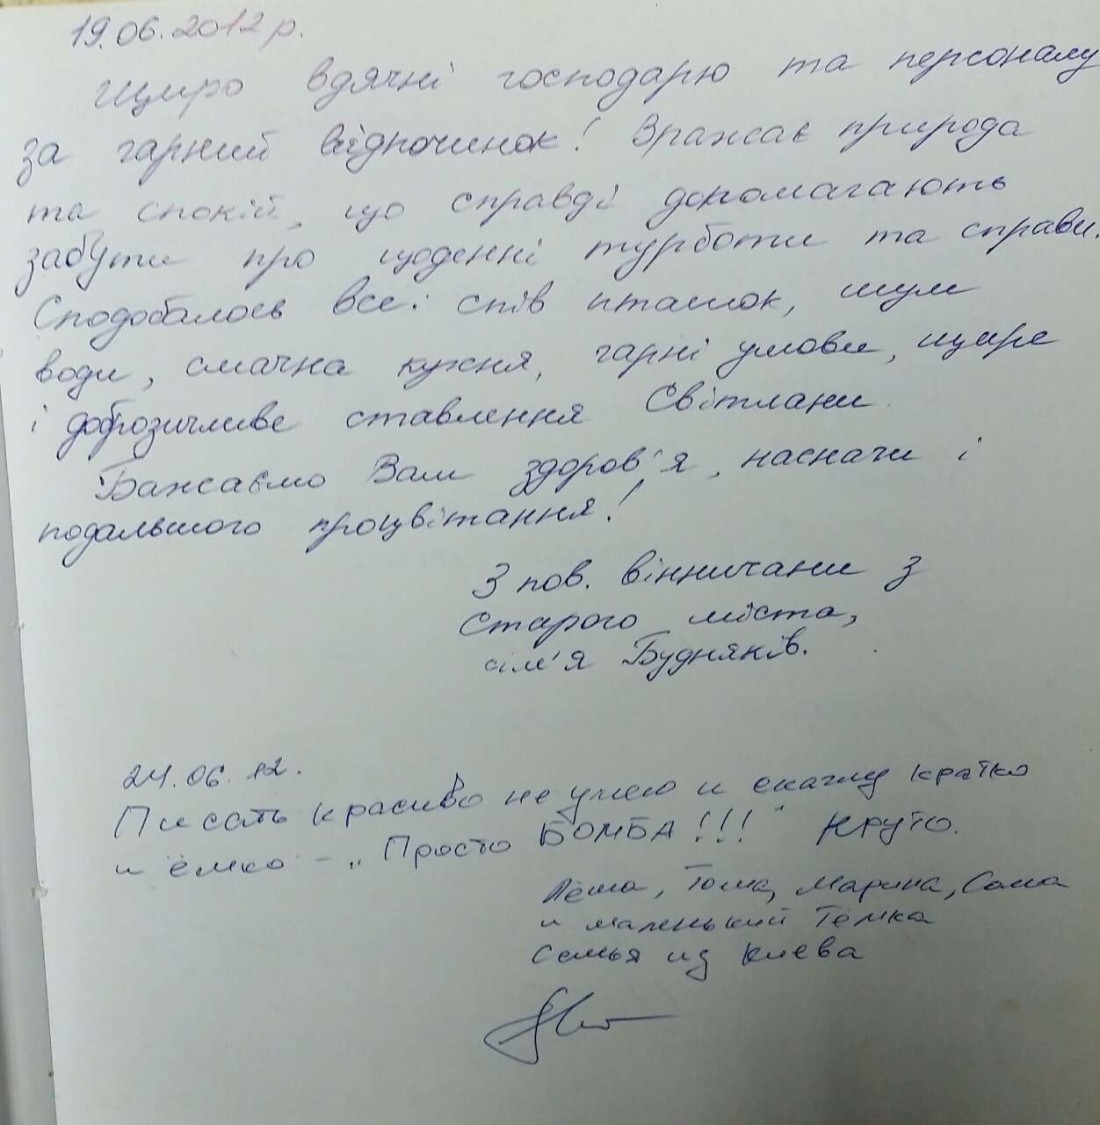 19.06.2012 р.
Щиро вдячні господарю та персоналу
за гарний відпочинок! Вражає природа
та спокій, що справді допомагають
забути про щоденні турботи та справи.
Сподобалось все: спів пташок, шум
води, смачна кухня, гарні умови, щире
і доброзичливе ставлення Світлани.
Бажаємо Вам здоров'я, наснаги і
подальшого процвітання!
З пов. вінничани з
Старого міста,
сім'я Будняків.
24.06.12.
Писать красиво не умею и скажу кратко
и ёмко - „Просто БОМБА!!!" Круто.
Лёша, Тома, Марина, Саша
и маленький Тёмка
Семья из Киева